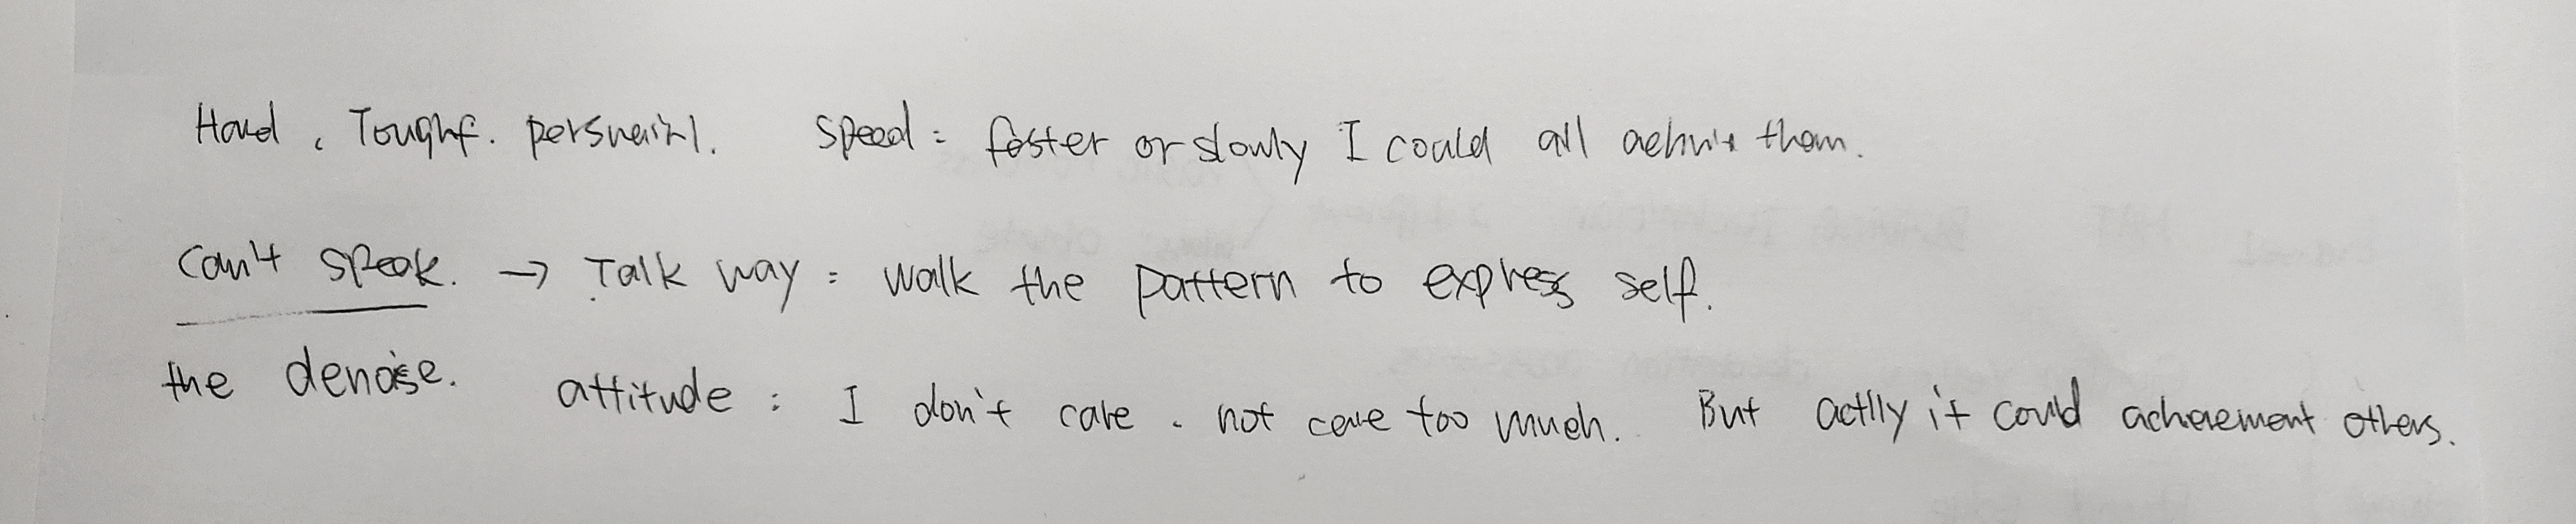 Hard, Tough. Speed: faster or slowly I could all them.
can't speak. → Talk way: walk the pattern to express self.
the denoise. attitude: I don't care. not care too much. But actlly it could achievement others.